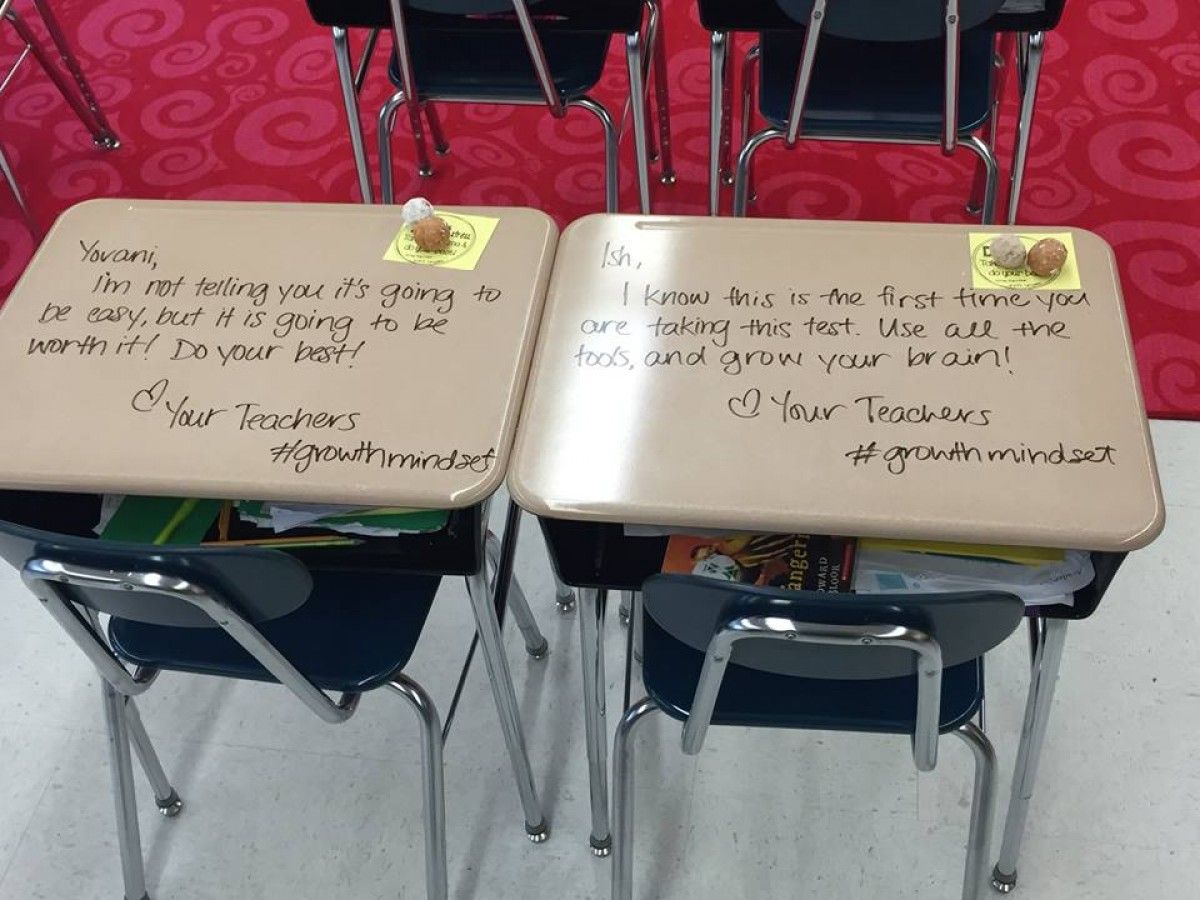 Yovani,
I'm not telling you it's going to
be easy, but it is going to be
worth it! Do your best!
♡ Your Teachers
#growthmindset
Ish,
I know this is the first time you
are taking this test. Use all the
tools, and grow your brain!
♡ Your Teachers
#growthmindset
do your be